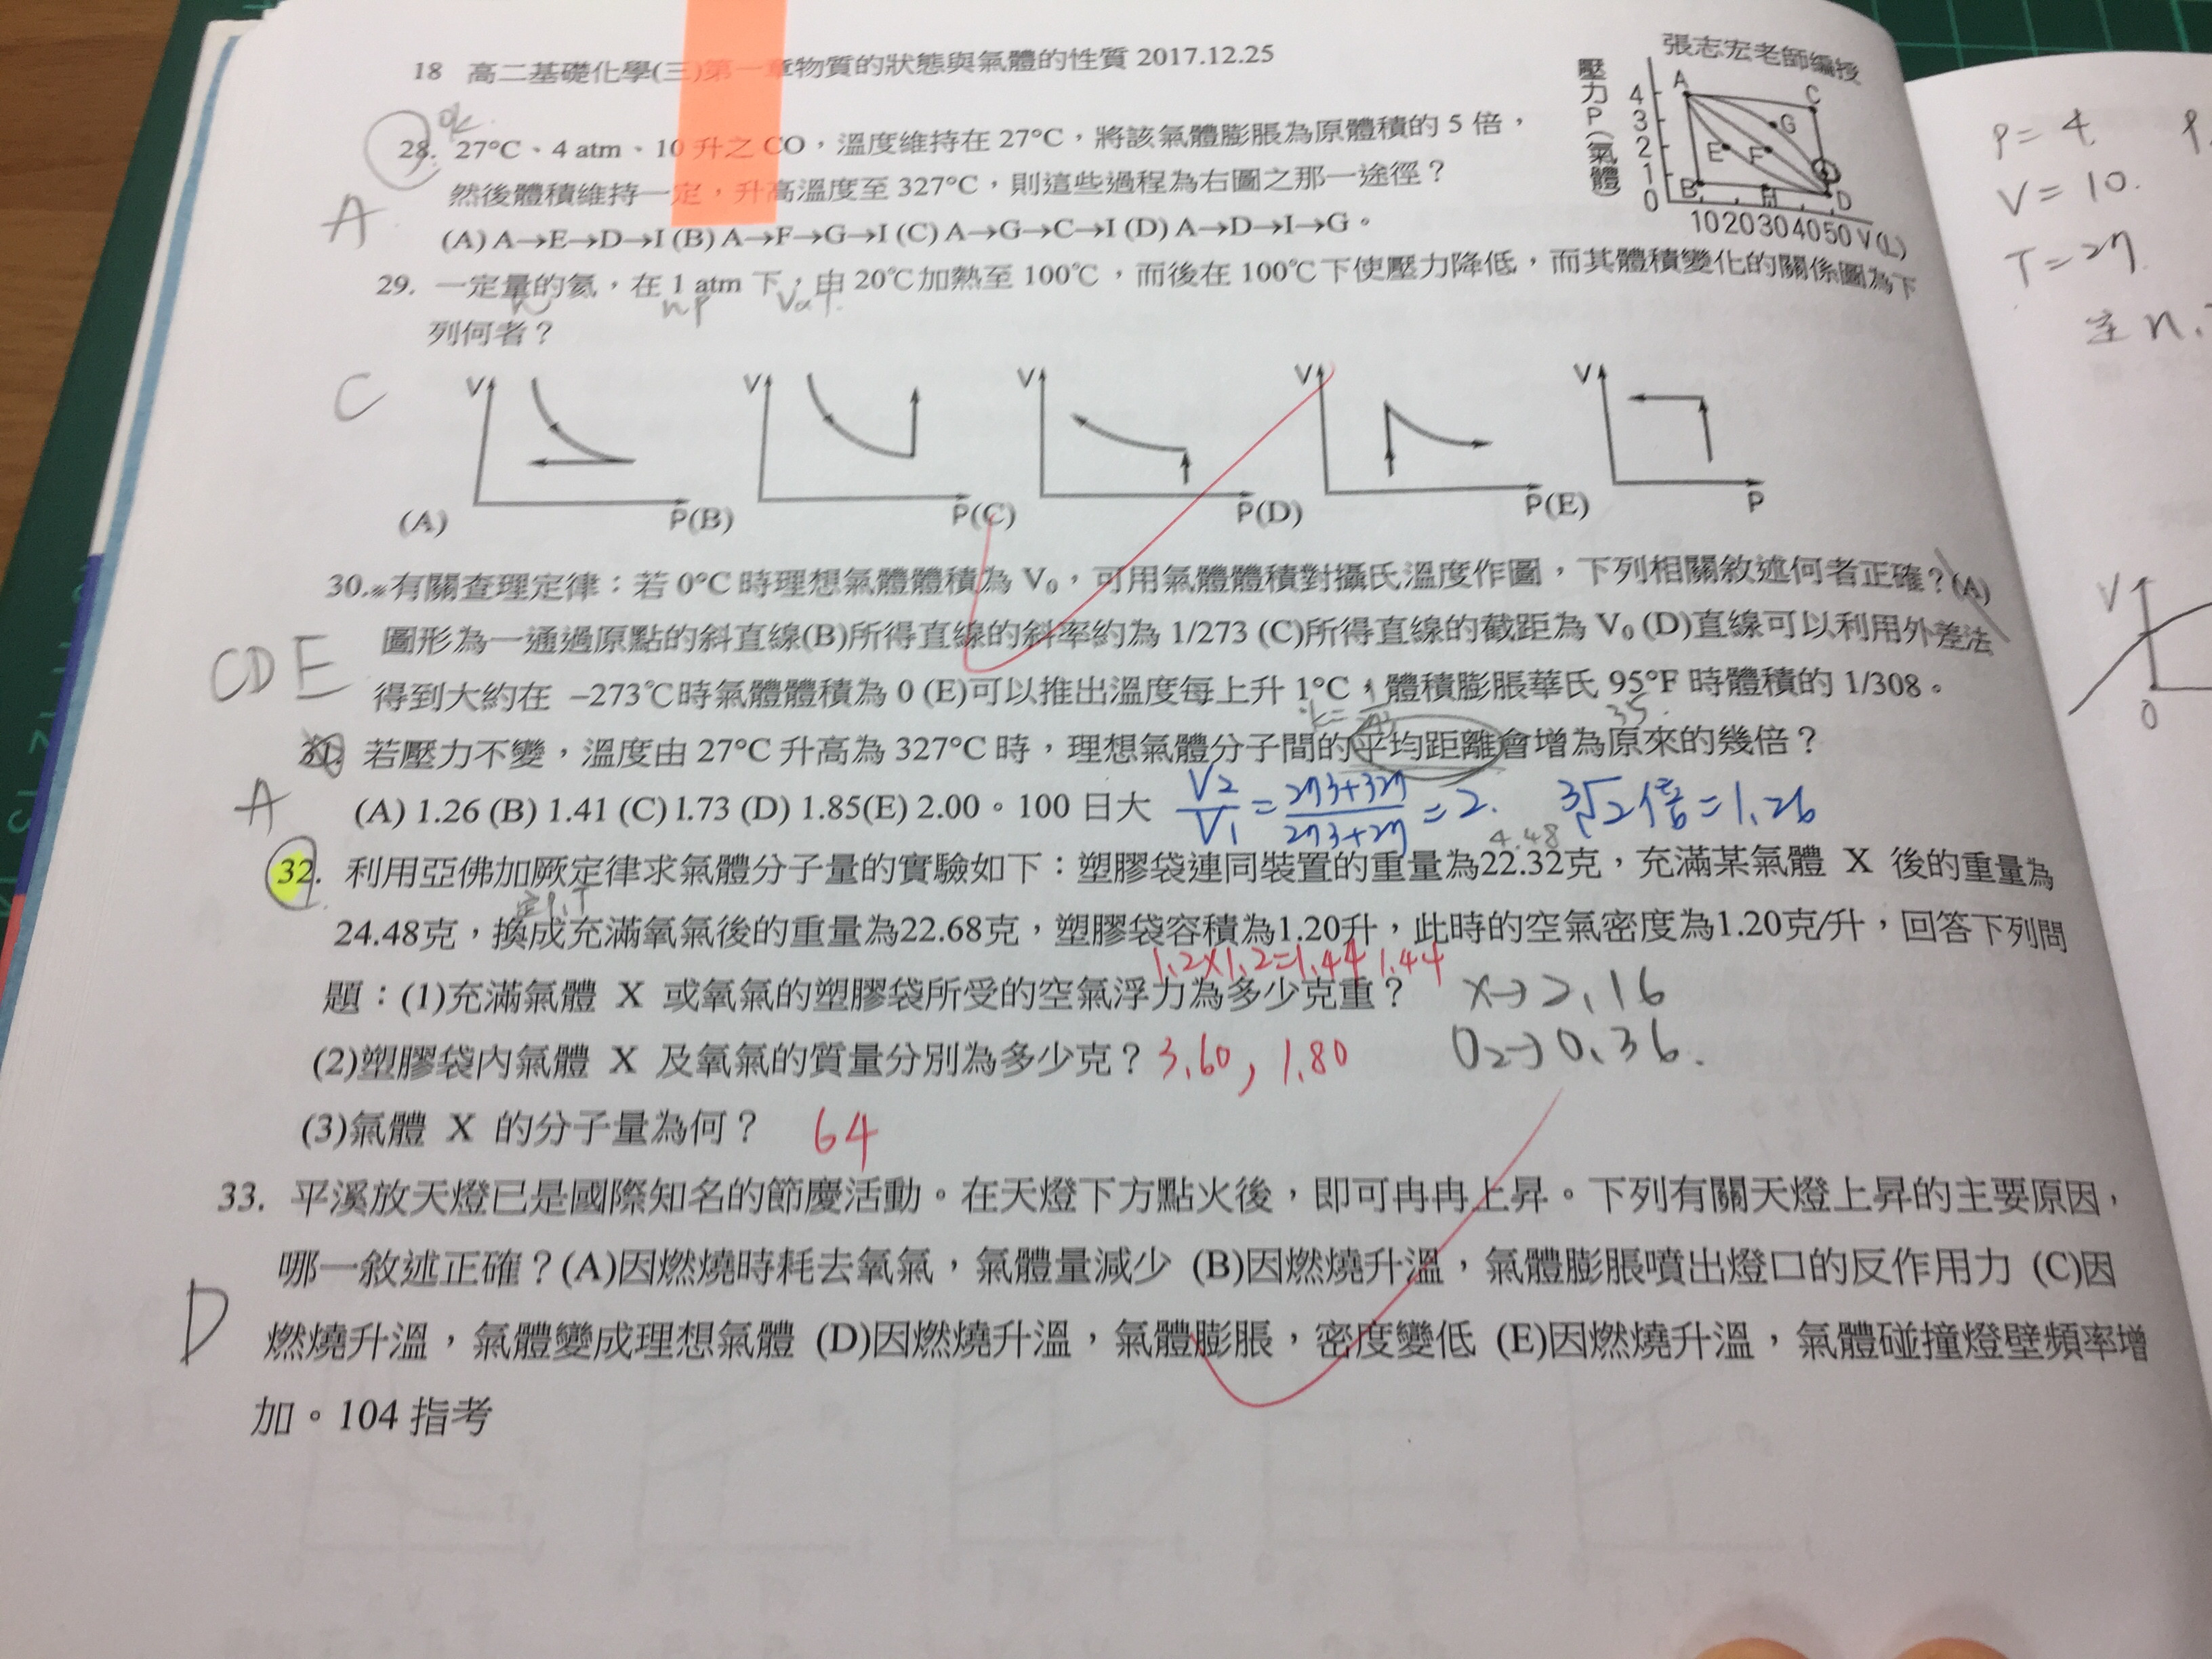 18 高二基礎化學(三)第一章物質的狀態與氣體的性質 2017.12.25
張志宏老師編授
ok
28. 27°C、4 atm、10 升之 CO，溫度維持在 27°C，將該氣體膨脹為原體積的 5 倍，
然後體積維持一定，升高溫度至 327°C，則這些過程為右圖之那一途徑？
A
(A) A→E→D→I (B) A→F→G→I (C) A→G→C→I (D) A→D→I→G。
壓力P(氣體)
4
3
2
1
0
A
C
G
E
F
I
B
H
D
10 20 30 40 50 V(L)
29. 一定量的氦，在 1 atm 下，由 20℃加熱至 100℃，而後在 100℃下使壓力降低，而其體積變化的關係圖為下
n np VαT
列何者？
C
V V V V V
(A) P(B) P(C) P(D) P(E) P
30.※有關查理定律：若 0°C 時理想氣體體積為 V₀，可用氣體體積對攝氏溫度作圖，下列相關敘述何者正確？(A)
圖形為一通過原點的斜直線(B)所得直線的斜率約為 1/273 (C)所得直線的截距為 V₀ (D)直線可以利用外差法
CDE
得到大約在 −273℃時氣體體積為 0 (E)可以推出溫度每上升 1°C，體積膨脹華氏 95°F 時體積的 1/308。
35
31. 若壓力不變，溫度由 27°C 升高為 327°C 時，理想氣體分子間的平均距離會增為原來的幾倍？
A
(A) 1.26 (B) 1.41 (C) 1.73 (D) 1.85(E) 2.00。100 日大
V2/V1 = 273+327/273+27 = 2. ³√2倍=1.26
4.48
32. 利用亞佛加厥定律求氣體分子量的實驗如下：塑膠袋連同裝置的重量為22.32克，充滿某氣體 X 後的重量為
定P.T
24.48克，換成充滿氧氣後的重量為22.68克，塑膠袋容積為1.20升，此時的空氣密度為1.20克/升，回答下列問
1.2×1.2=1.44 1.44
題：(1)充滿氣體 X 或氧氣的塑膠袋所受的空氣浮力為多少克重？
X→2.16
(2)塑膠袋內氣體 X 及氧氣的質量分別為多少克？ 3.60, 1.80
O2→0.36.
(3)氣體 X 的分子量為何？ 64
33. 平溪放天燈已是國際知名的節慶活動。在天燈下方點火後，即可冉冉上昇。下列有關天燈上昇的主要原因，
哪一敘述正確？(A)因燃燒時耗去氧氣，氣體量減少 (B)因燃燒升溫，氣體膨脹噴出燈口的反作用力 (C)因
D
燃燒升溫，氣體變成理想氣體 (D)因燃燒升溫，氣體膨脹，密度變低 (E)因燃燒升溫，氣體碰撞燈壁頻率增
加。104 指考
P=4
V=10.
T=27.
定 n.
V
0